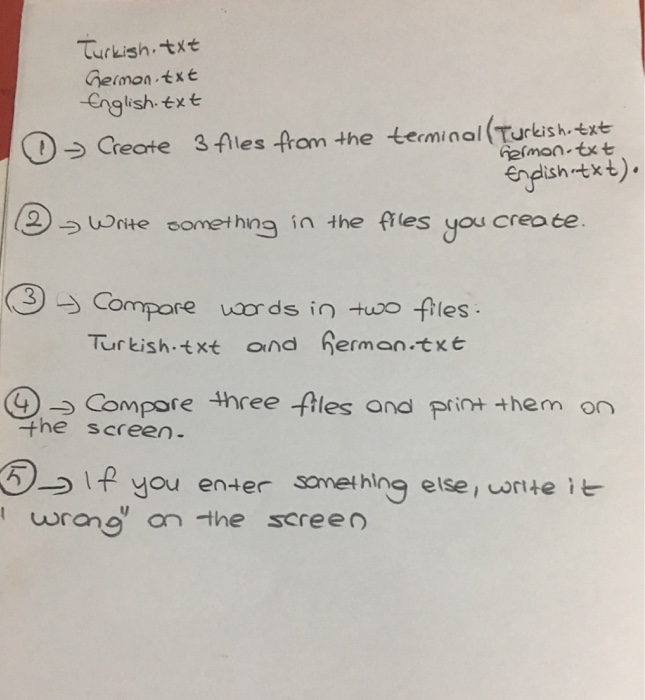 Turkish.txt
German.txt
English.txt
1 → Create 3 files from the terminal (Turkish.txt
German.txt
English.txt).
2 → Write something in the files you create.
3 → Compare words in two files.
Turkish.txt and German.txt
4 → Compare three files and print them on
the screen.
5 → If you enter something else, write it
"wrong" on the screen